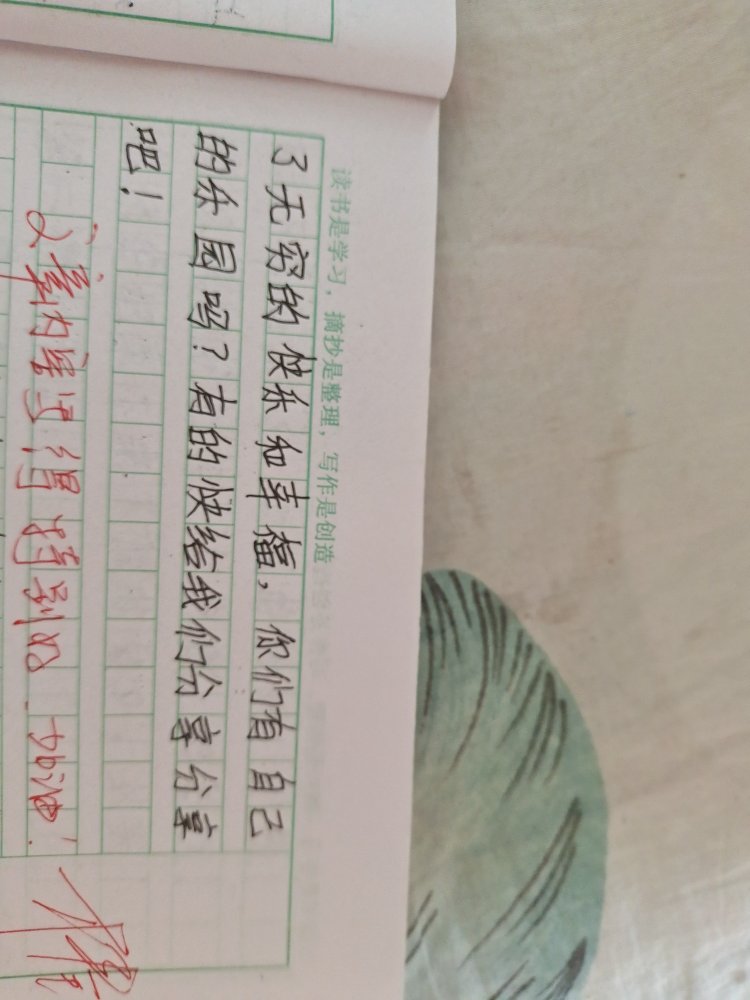 读书是学习，摘抄是整理，写作是创造
了无穷的快乐和幸福，你们有自己
的乐园吗？有的快给我们分享分享
吧！
文章内容写得特别好，加油！